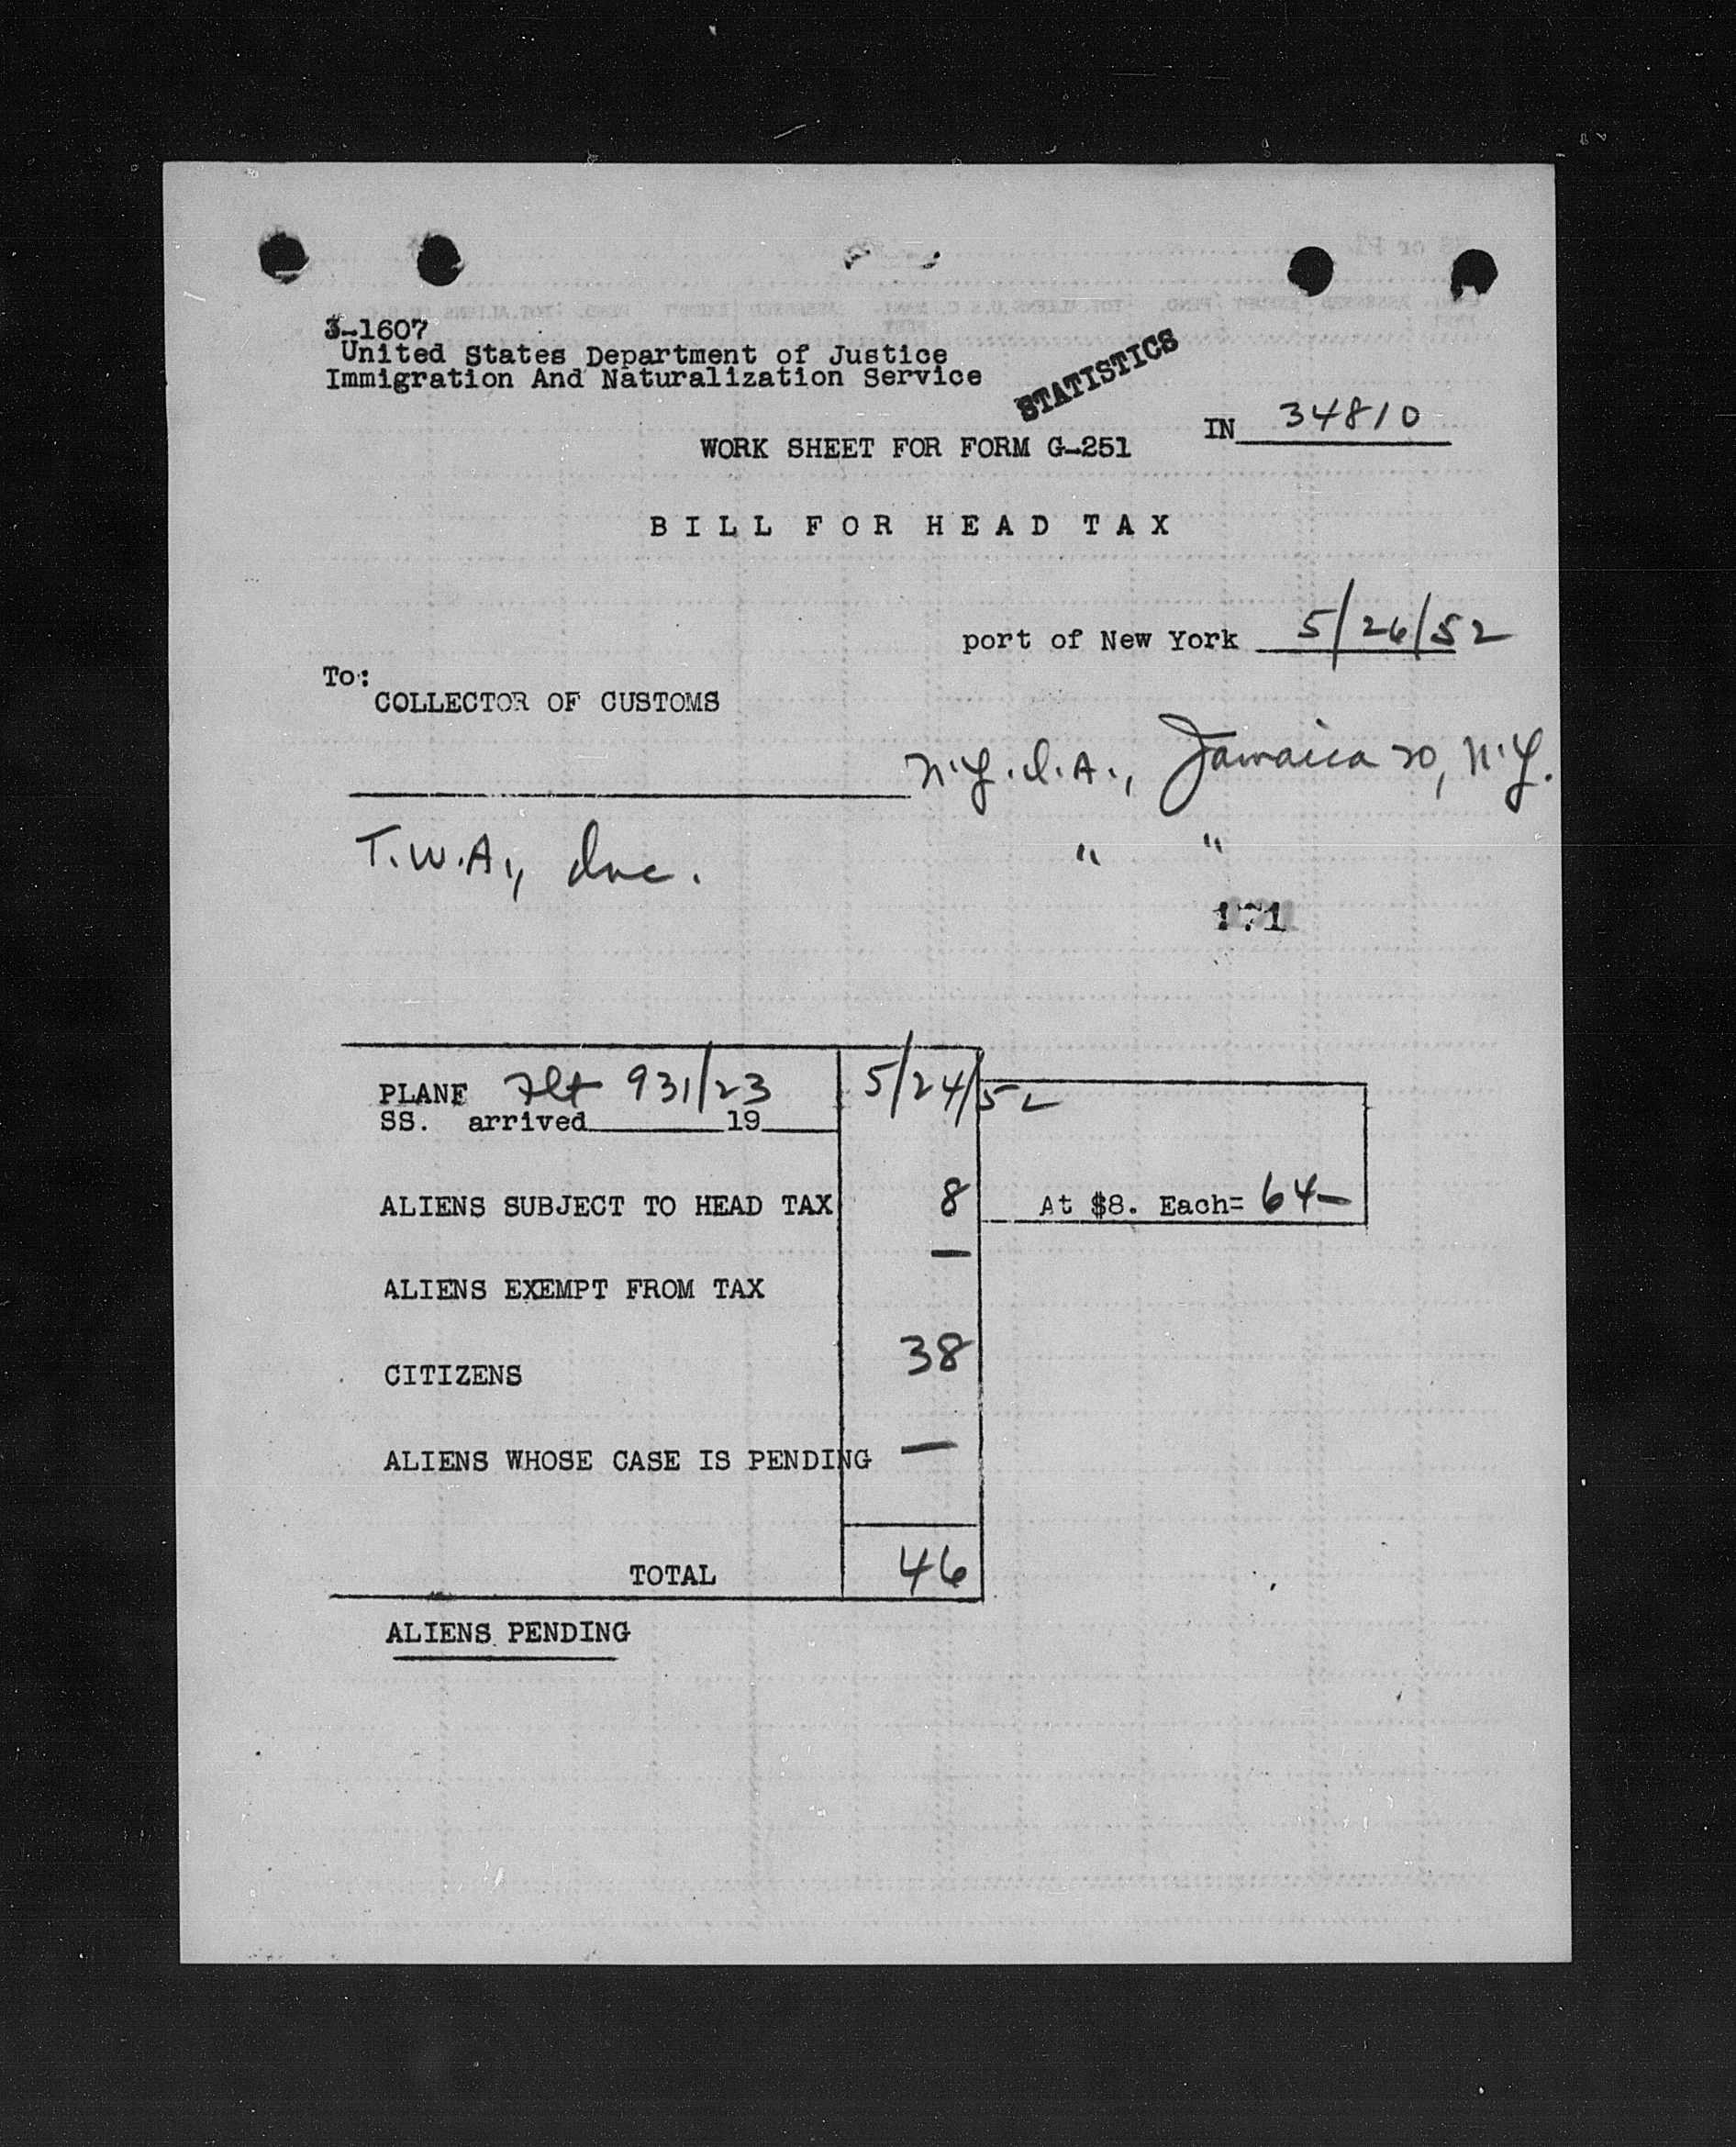 3-1607
United States Department of Justice
Immigration And Naturalization Service
STATISTICS
IN 34810
WORK SHEET FOR FORM G-251
BILL FOR HEAD TAX
port of New York 5/26/52
To:
COLLECTOR OF CUSTOMS
N.Y.I.A., Jamaica 20, N.Y.
T.W.A., Inc. " "
171
PLANE Flt 931/23 5/24/52
SS. arrived 19
ALIENS SUBJECT TO HEAD TAX 8 At $8. Each= 64-
ALIENS EXEMPT FROM TAX —
CITIZENS 38
ALIENS WHOSE CASE IS PENDING —
TOTAL 46
ALIENS PENDING